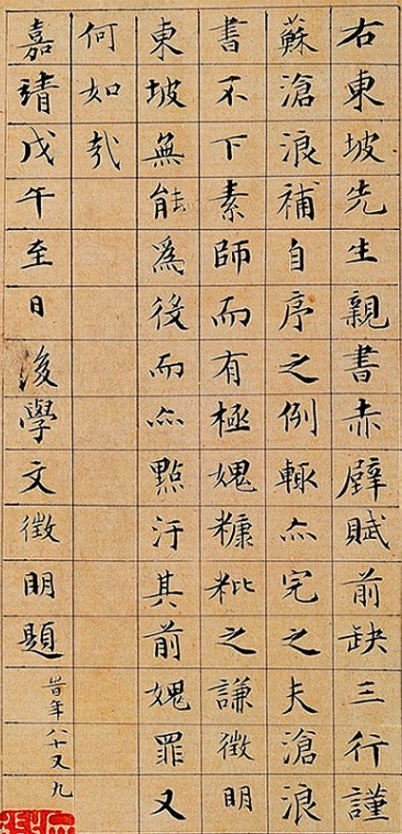 右東坡先生親書赤壁賦前缺三行謹
蘇滄浪補自序之例輙亦完之夫滄浪
書不下素師而有極媿糠粃之謙徵明
東坡無能爲役而亦點汙其前媿罪又
何如哉
嘉靖戊午至日後學文徵明題旹年八十又九